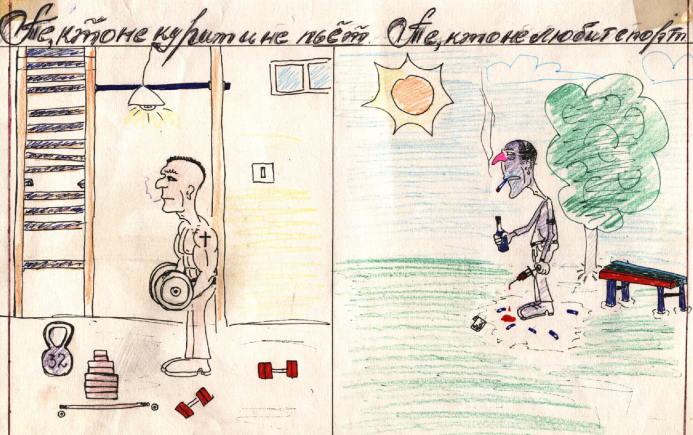 Те, кто не курит и не пьёт.
Те, кто не любит спорт
32